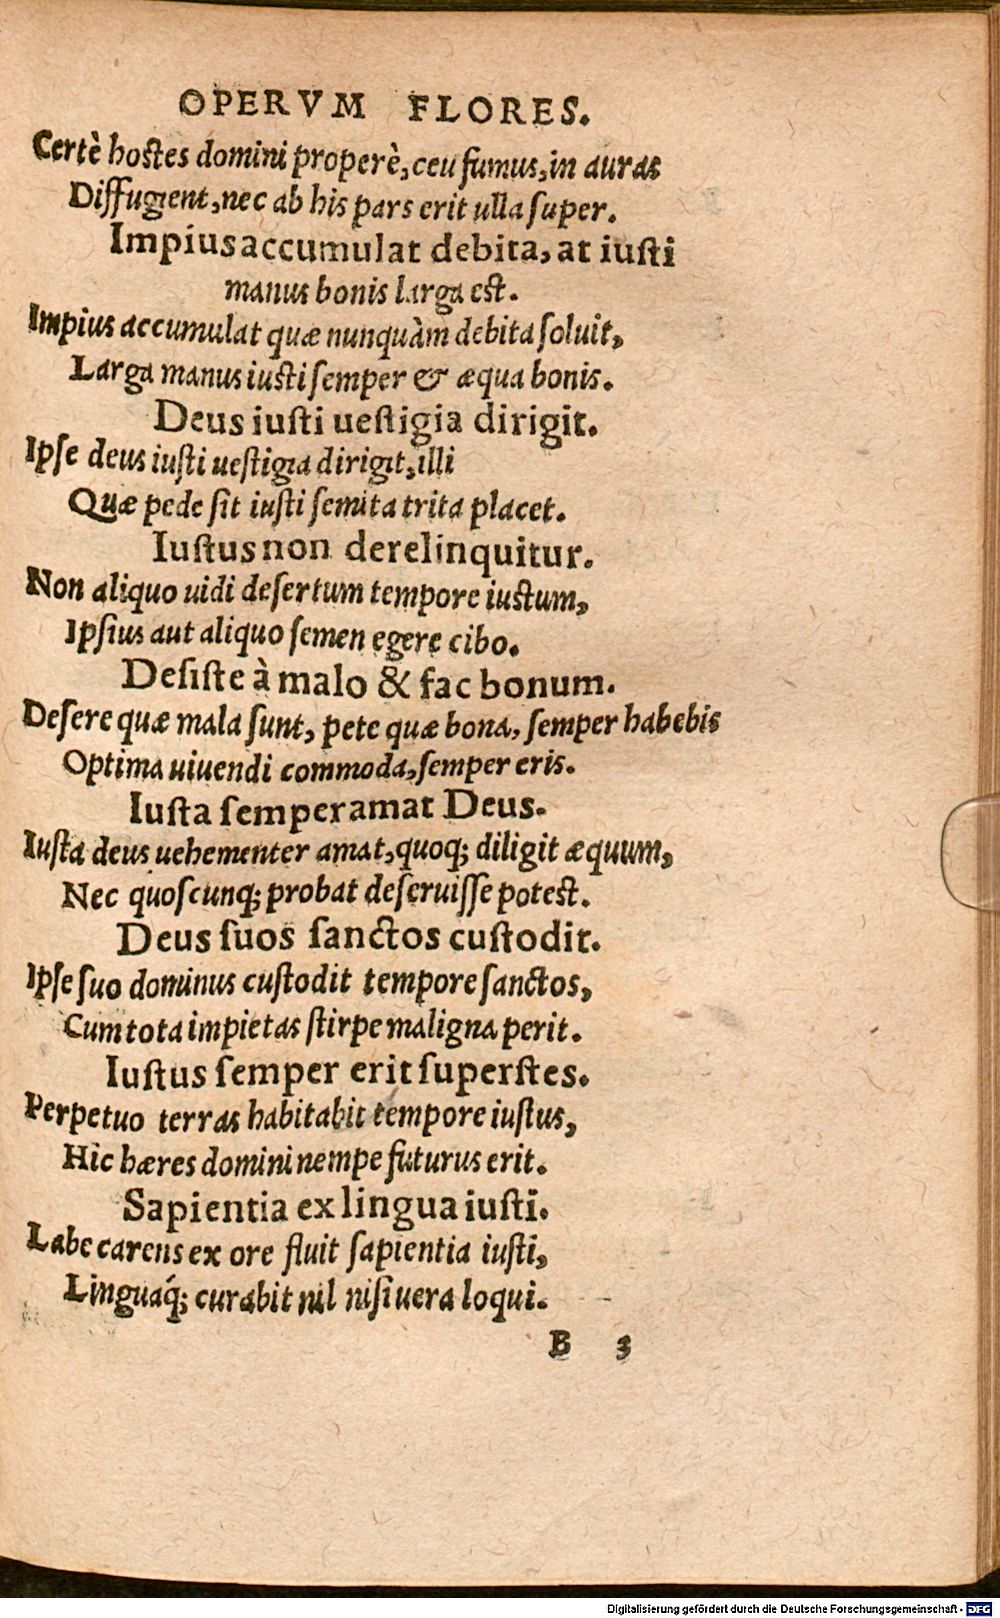 OPERVM FLORES.
Certè hostes domini properè, ceu fumus, in auras
Diffugient, nec ab his pars erit ulla super.
Impius accumulat debita, at iusti
manus bonis larga est.
Impius accumulat quæ nunquàm debita soluit,
Larga manus iusti semper & æqua bonis.
Deus iusti uestigia dirigit.
Ipse deus iusti uestigia dirigit, illi
Quæ pede sit iusti semita trita placet.
Iustus non derelinquitur.
Non aliquo uidi desertum tempore iustum,
Ipsius aut aliquo semen egere cibo.
Desiste à malo & fac bonum.
Desere quæ mala sunt, pete quæ bona, semper habebis
Optima uiuendi commoda, semper eris.
Iusta semper amat Deus.
Iusta deus uehementer amat, quoq; diligit æquum,
Nec quoscunq; probat deseruisse potest.
Deus suos sanctos custodit.
Ipse suo dominus custodit tempore sanctos,
Cum tota impietas stirpe maligna perit.
Iustus semper erit superstes.
Perpetuo terras habitabit tempore iustus,
Hic hæres domini nempe futurus erit.
Sapientia ex lingua iusti.
Labe carens ex ore fluit sapientia iusti,
Linguáq; curabit nil nisi uera loqui.
B 3
Digitalisierung gefördert durch die Deutsche Forschungsgemeinschaft - DFG